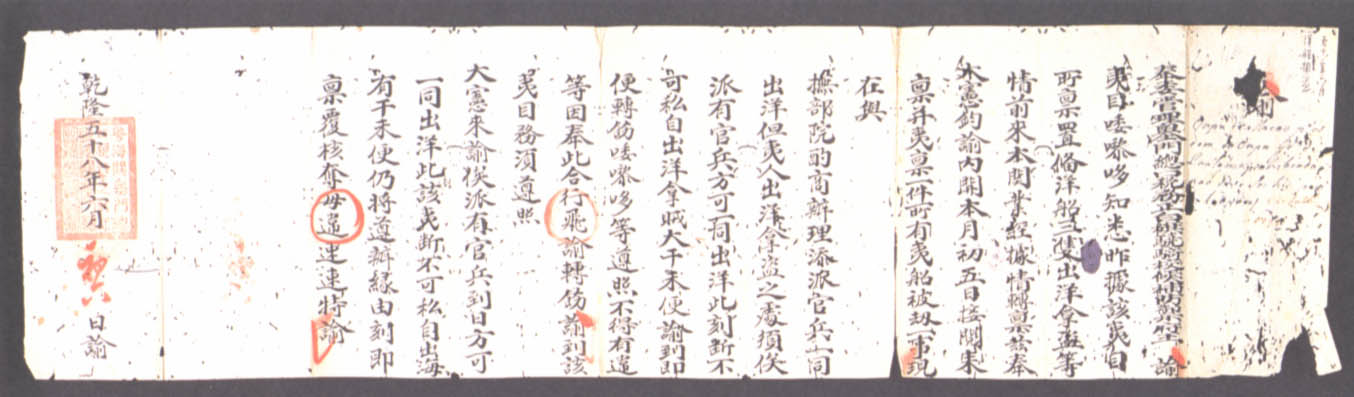 諭
夷目喽嚟哆知悉昨據該夷目
所稟置備洋船二隻出洋拿盗等
情前來本関業經據情轉稟茲奉
大憲鈞諭內開本月初五日接閱來
稟并夷稟一件所有夷船被刼一事現
在與
撫部院酌商辦理添派官兵一同
出洋但夷人出洋拿盗之處須俟
派有官兵方可一同出洋此刻斷不
可私自出洋拿賊大干未便諭到即
便轉飭喽嚟哆等遵照不得有違
等因奉此合行飛諭轉飭諭到該
夷目務須遵照
大憲來諭俟派有官兵到日方可
一同出洋此該夷斷不可私自出海
有干未便仍將遵辦緣由刻即
稟覆核奪毋違速速特諭
乾隆五十八年六月 日諭